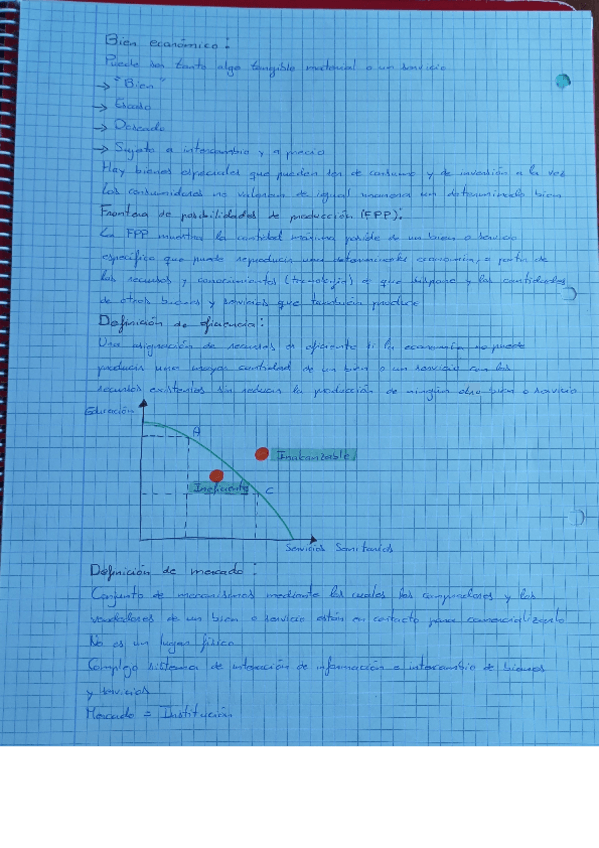 Bien económico:
Puede ser tanto algo tangible material o un servicio
→ "Bien"
→ Escaso
→ Deseado
→ Sujeto a intercambio y a precio
Hay bienes especiales que pueden ser de consumo y de inversión a la vez
Los consumidores no valoran de igual manera un determinado bien
Frontera de posibilidades de producción (FPP):
La FPP muestra la cantidad máxima posible de un bien o servicio
específico que puede reproducir una determinada economía, a partir de
los recursos y conocimientos (tecnología) a que dispone y las cantidades
de otros bienes y servicios que también produce
Definición de eficiencia:
Una asignación de recursos es eficiente si la economía no puede
producir una mayor cantidad de un bien o un servicio con los
recursos existentes sin reducir la producción de ningún otro bien o servicio
Educación
A
Inalcanzable
Ineficiente
C
Servicios Sanitarios
Definición de mercado:
Conjunto de mecanismos mediante los cuales los compradores y los
vendedores de un bien o servicio están en contacto para comercializarlo
No es un lugar físico
Complejo sistema de interacción de información e intercambio de bienes
y servicios
Mercado = Institución